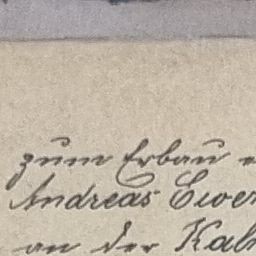 zum Erbau e
Andreas Ewer
an der Kal